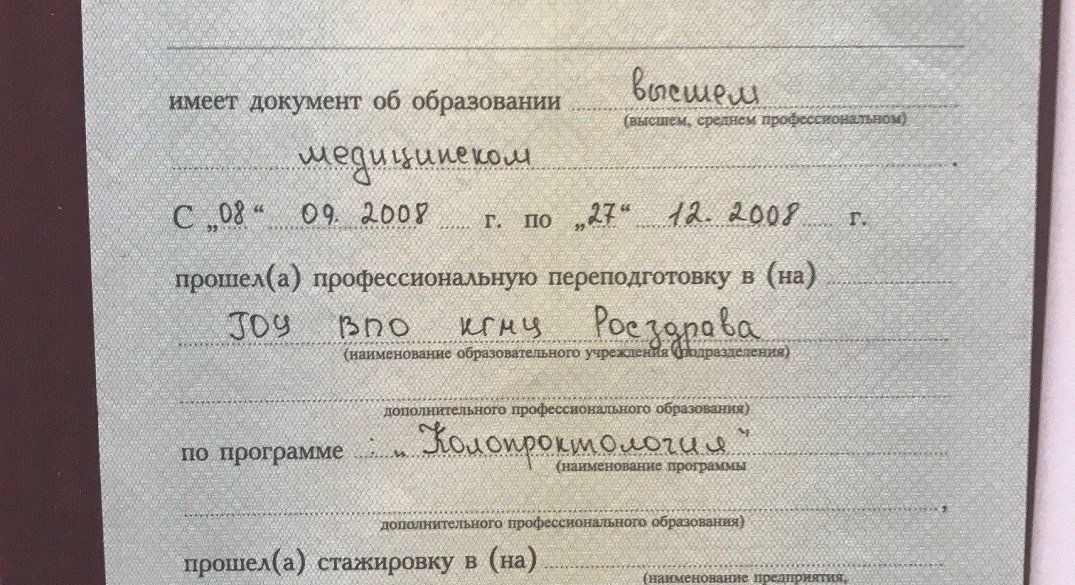 имеет документ об образовании высшем
(высшем, среднем профессиональном)
медицинском .
С „08“ 09. 2008 г. по „27“ 12. 2008 г.
прошел(а) профессиональную переподготовку в (на)
ГОУ ВПО КГМУ Росздрава
(наименование образовательного учреждения (подразделения)
дополнительного профессионального образования)
по программе : „Колопроктология“
(наименование программы
,
дополнительного профессионального образования)
прошел(а) стажировку в (на)
(наименование предприятия,